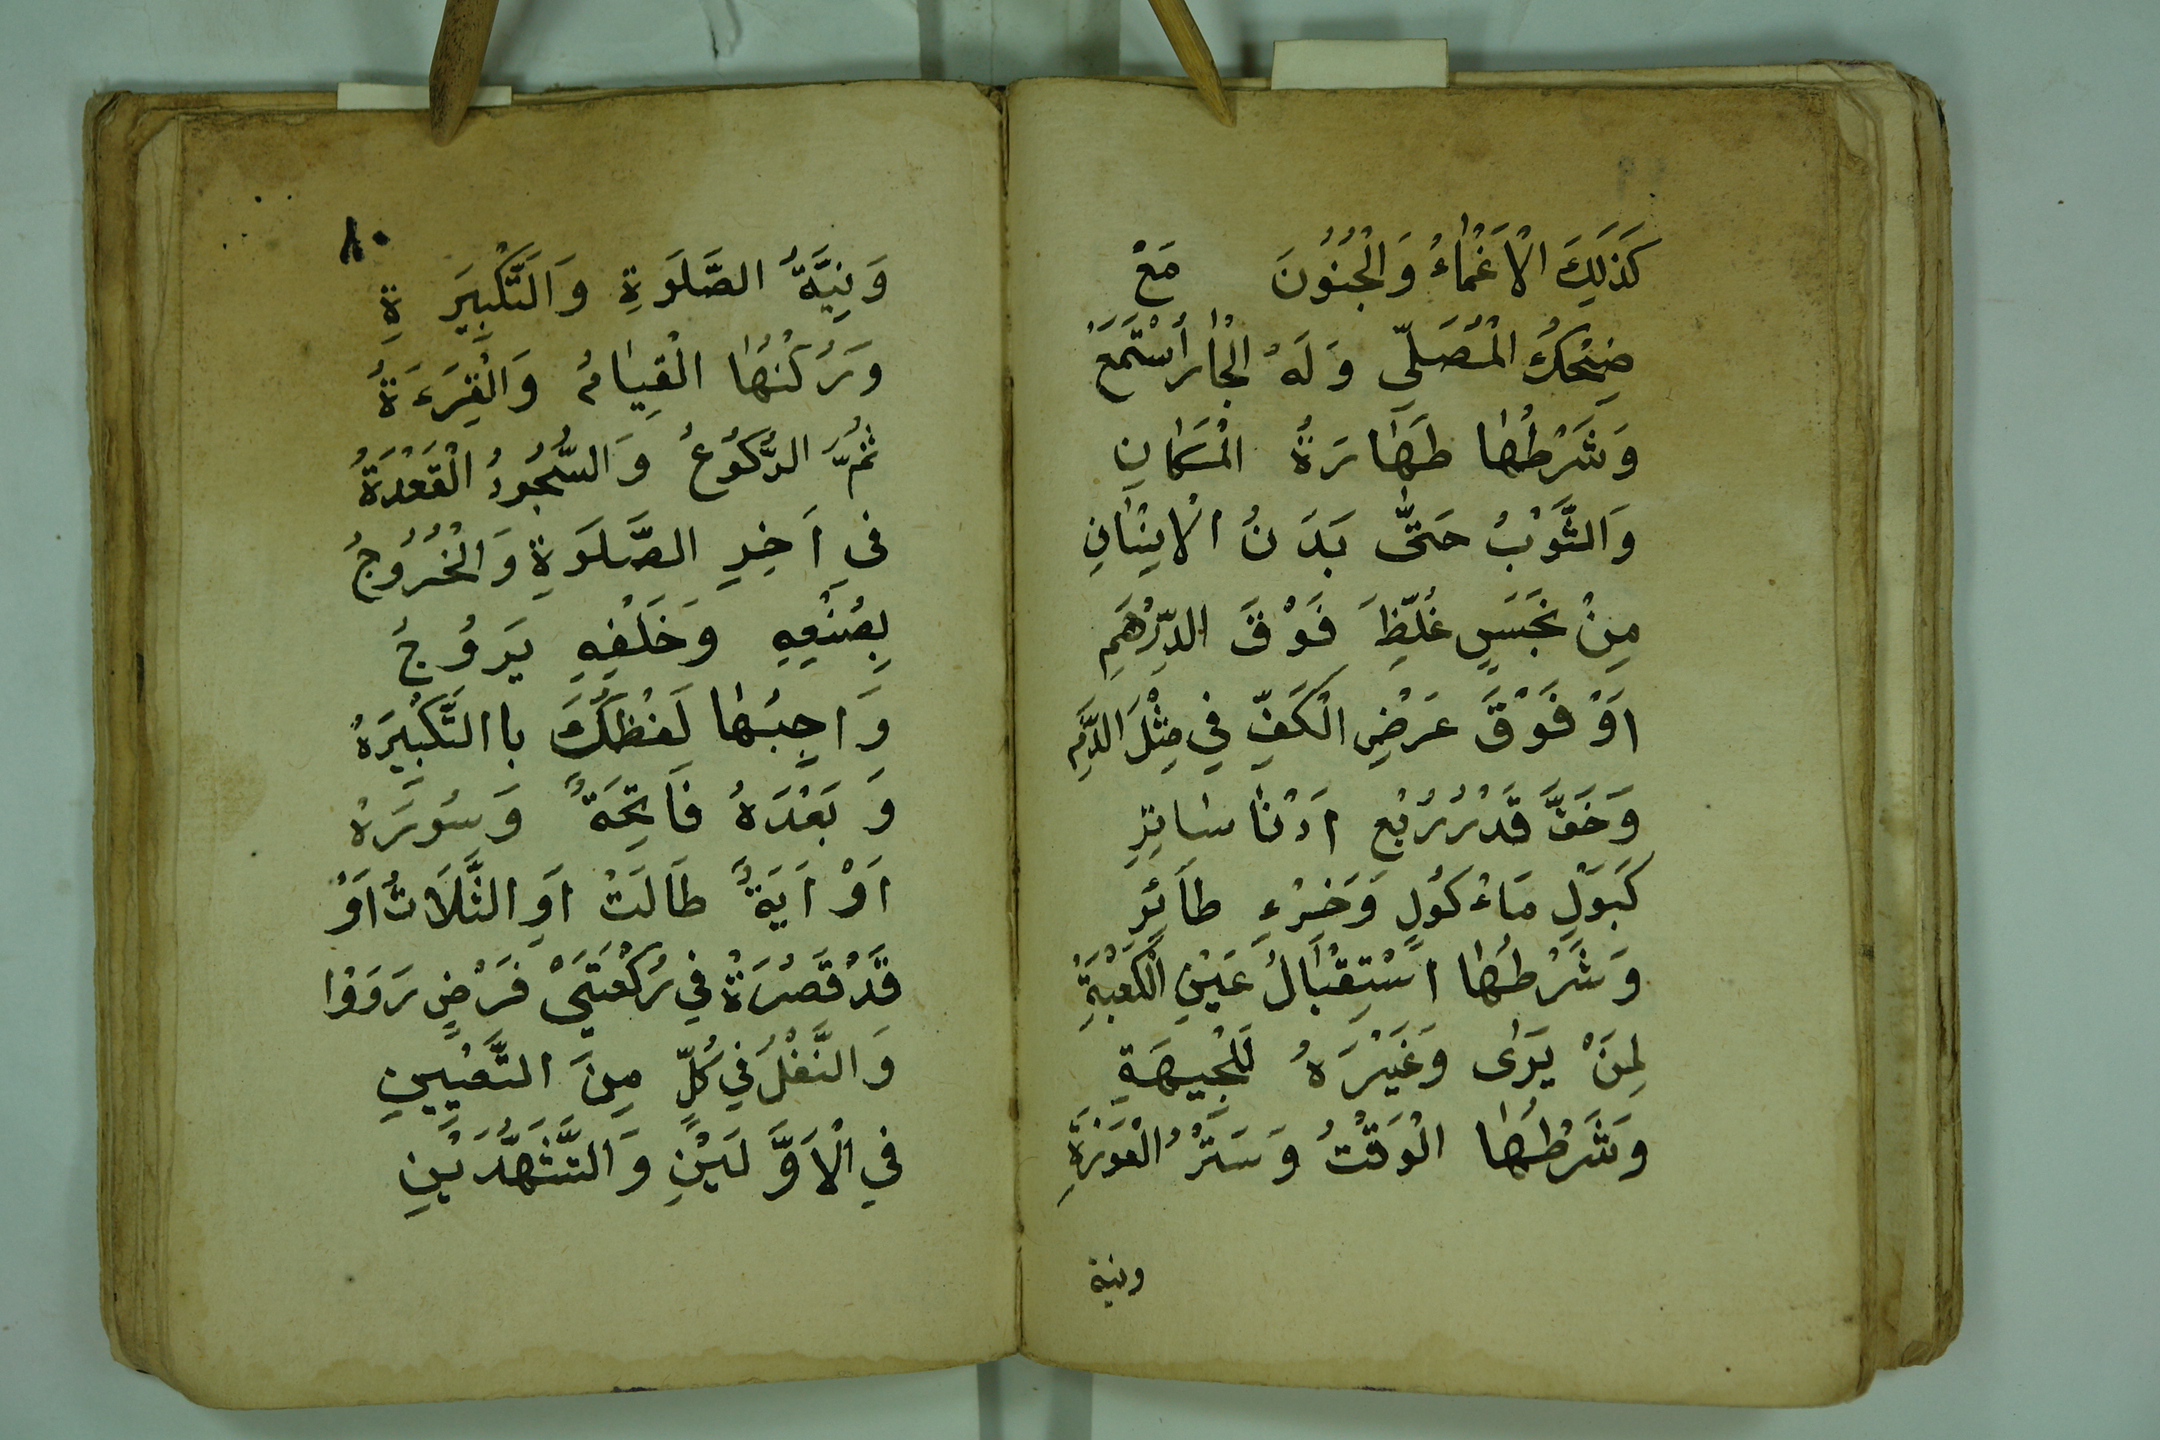 كَذَلِكَ الْاَغْمٰاءُ وَالْجُنُونَ مَعْ
ضِحْكُ الْمُصَلّىِ وَلَهُ الْجٰارُ اُسْتَمَعَ
وَشَرْطُهٰا طَهٰارَةُ الْمَكٰانِ
وَالثَّوْبُ حَتّٰى بَدَنُ الْاِنْٰانِ
مِنْ نَجَسٍ غُلِّظَ فَوْقَ الدِّرْهَمِ
اَوْ فَوْقَ عَرْضِ الْكَفِّ فِي مِثْلَ الدَّمِ
وَخَفَّ قَدْرُ رُبْعِ اَدْنٰا سٰاتِرِ
كَبَوْلِ مَاءْكُولٍ وَخِرْءِ طَائِرِ
وَشَرْطُهٰا اسْتِقْبٰالُ عَيْنِ الْكَعْبَةِ
لِمَنْ يَرٰى وَغَيْرَهُ لَلْجِيهَةِ
وَشَرْطُهٰا الْوَقْتُ وَسَتْرُ الْعَوْرَةِ
ونية
٨٠
وَنِيَّةُ الصَّلَوةِ وَالَتَّكْبِيَرةِ
وَرُكْنُهٰا الْقِيٰامُ وَالْقِرَءَةُ
ثُمَّ الرُّكُوعُ وَالسُّجُودُ الْقَعْدَةُ
فىِ اَخِرِ الصَّلَوةِ وَالْخُرُوجُ
بِصُنْعِهِ وَخَلْفِهِ يَرُوجُ
وَاجِبُهٰا لَفْظُكَ باالتَّكْبِيَرهُ
وَبَعْدَهُ فَاتِحَةٌ وَسُورَهْ
اَوْ اَيَةٌ طَالَتْ اَوِ الثَّلَاثُ اَوْ
قَدْ قَصُرَةْ فِي رَكْعَتَىْ فَرْضٍ رَوَوْا
وَالنَّفْلُ فِي كُلٍّ مِنَ التَّعْيِينِ
فِي الْاَوَّلَيْنِ وَالتَّشَهُّدَيْنِ